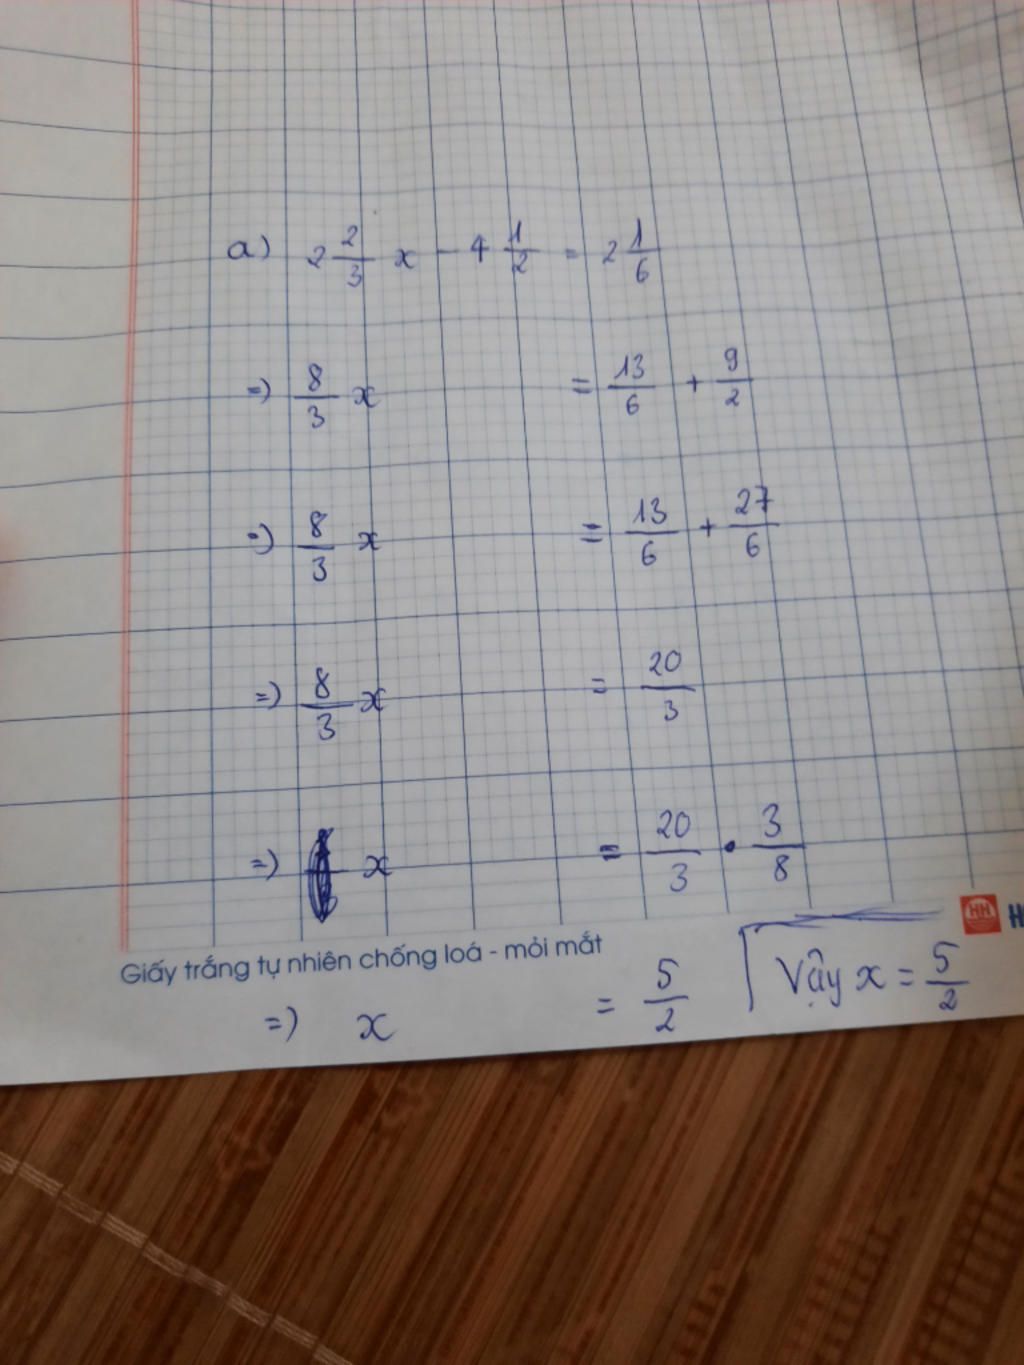 a) 2 2/3 x - 4 1/2 = 2 1/6
=) 8/3 x = 13/6 + 9/2
=) 8/3 x = 13/6 + 27/6
=) 8/3 x = 20/3
=) x = 20/3 . 3/8
HH H
Giấy trắng tự nhiên chống loá - mỏi mắt
=) x = 5/2 Vậy x = 5/2